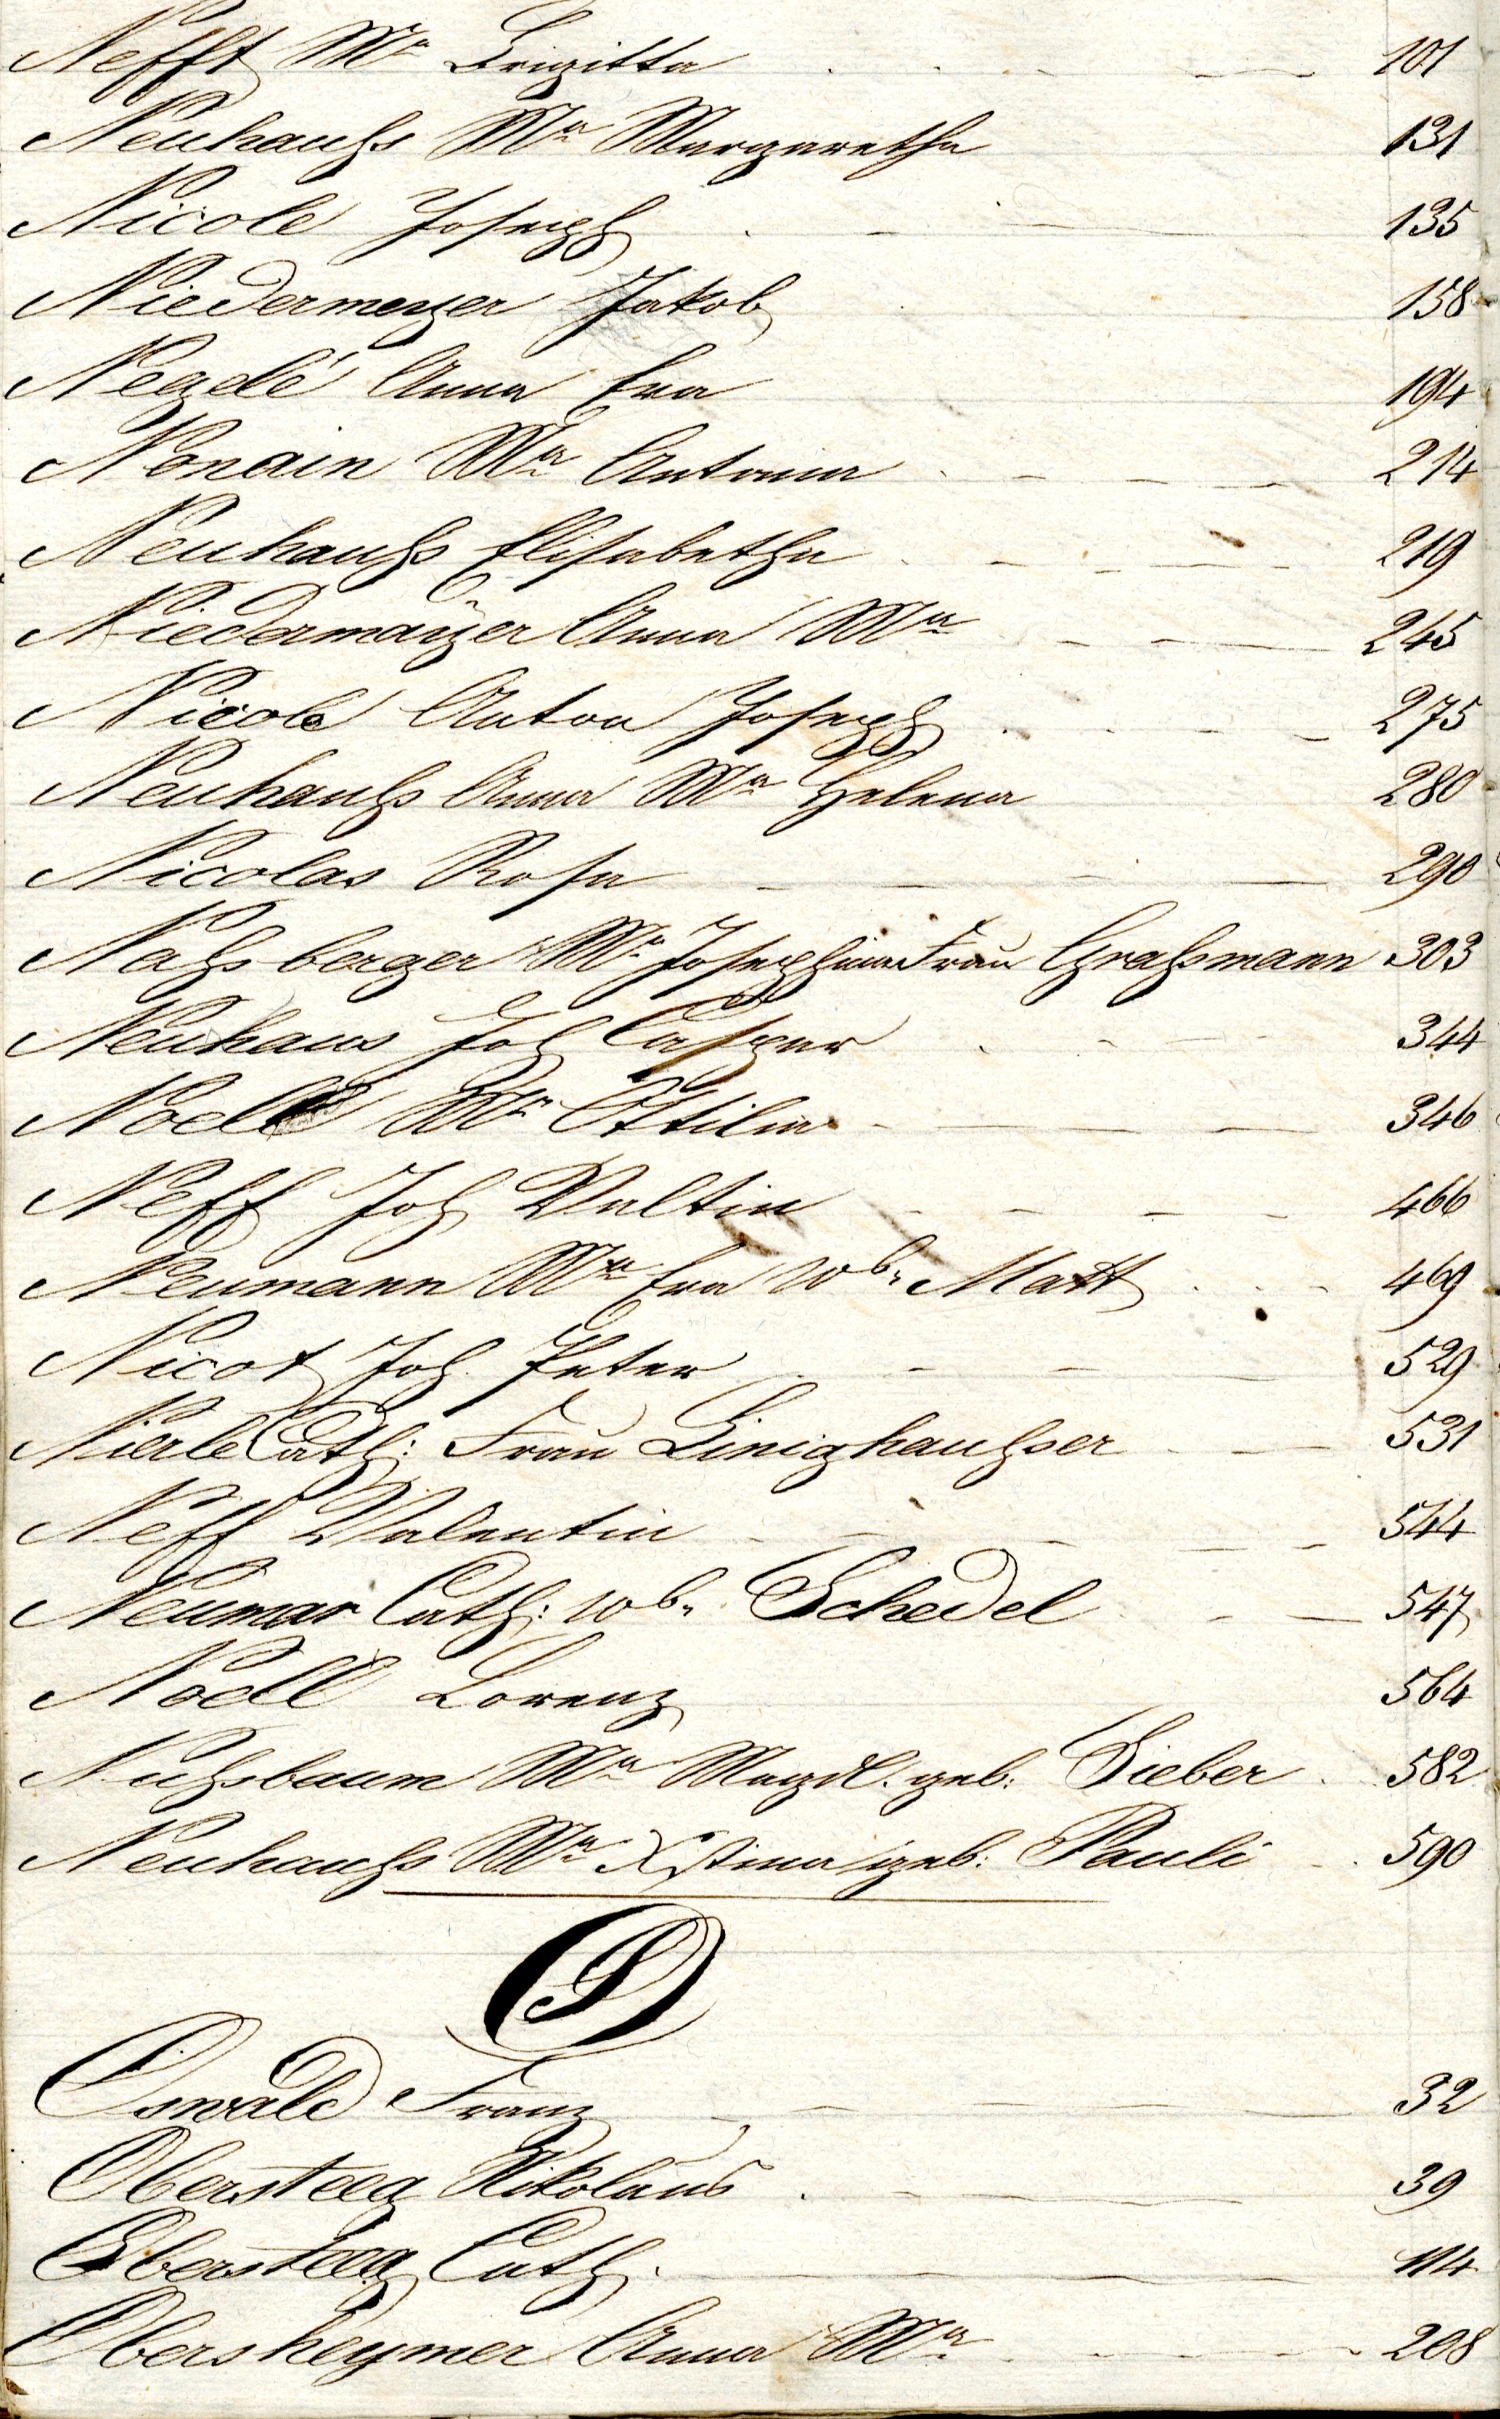 Nefft Mª Brigitta . . - - - 101
Neuhauſs Mª Margaretha 131
Nicole Joseph . - - - 135
Niedermeyer Jakob . 158
Negelé Anna Eva 194
Nonain Mª Antonia . - - - - 214
Neuhauſs Elisabetha . - - - - 219
Niedermaÿer Anna Mª - - - - 245
Nicole Anton Joseph . . - - - 275
Neuhauſs Anna Mª Helena 280
Nicolas Rosa - - - - 290
Naſsberger Mª Josephina Frau Graſsmann 303
Neuhaus Joh Casper . - - - 344
Noell Mª Ottilia - - - - - 346
Neff Joh Valtin - - - - 466
Neumann Mª Eva Wbr Matt . . - 469
Nicot Joh. Peter . - - - 529
Nierle Cath: Frau Linighauſser - - - 531
Neff Valentin - - - - - 544
Neumar Cath: Wbr Schedel . - - 547
Noell Lorenz 564
Nuſsbaum Mª Magdl. geb: Sieber . 582
Neuhauſs Mª Xstina geb: Pauli - . 590
O
Oswald Franz - - - - 32
Obersteeg Nikolaus . - - - 39
Obersteeg Cath. . - - - 114
Obersheymer Anna Mª . - - - 208